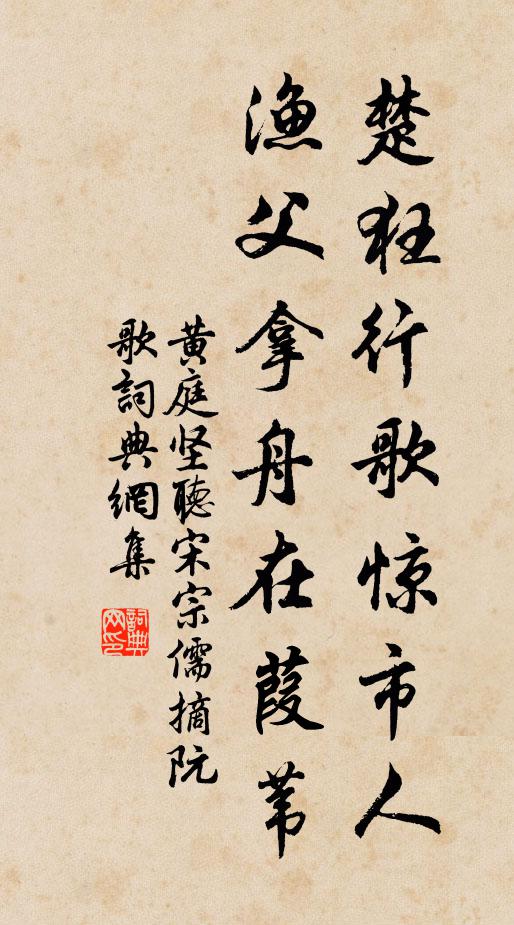 楚狂行歌惊市人
渔父拿舟在葭苇
黄庭坚聽宋宗儒摘阮
歌詞典網集
詞典
网印